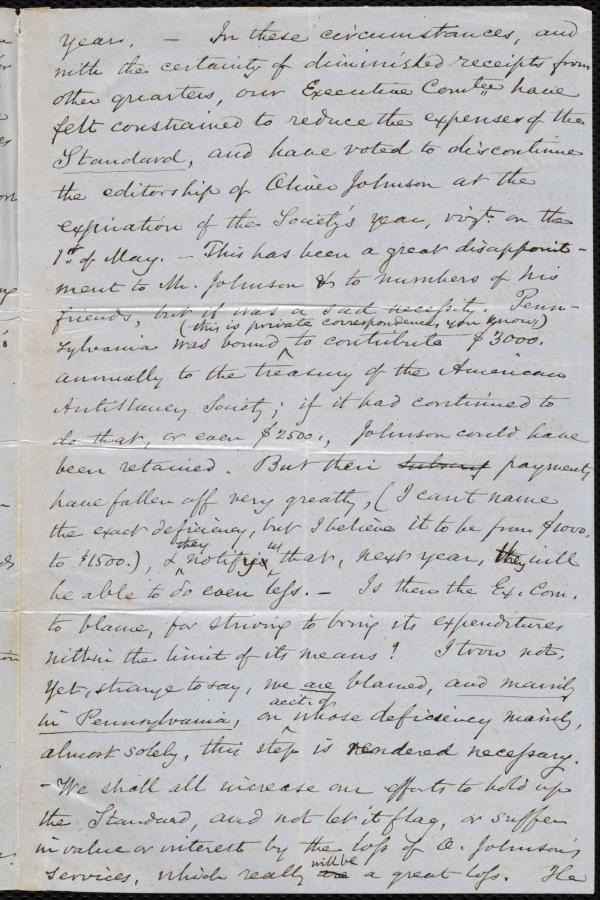 year. — In these circumstances, and
with the certainty of diminished receipts from
other quarters, our Executive Comtee have
felt constrained to reduce the expenses of the
Standard, and have voted to discontinue
the editorship of Oliver Johnson at the
expiration of the Society's year, vizt. on the
1st of May. — This has been a great disappoint-
ment to Mr. Johnson & to numbers of his
friends, but it was a sad necessity. Penn-
(this is private correspondence, you know,)
sylvania was bound to contribute $3000.
annually to the treasury of the American
AntiSlavery Society; if it had continued to
do that, or even $2500., Johnson could have
been retained. But their subscrip payments
have fallen off very greatly, (I can't name
the exact deficiency, but I believe it to be from $1000.
to $1500.), & they notify us that, next year, they will
be able to do even less. — Is then the Ex. Com.
to blame, for striving to bring its expenditures
within the limit of its means? I trow not.
Yet, strange to say, we are blamed, and mainly
in Pennsylvania, on acct. of whose deficiency mainly,
almost solely, this step is rendered necessary.
— We shall all increase our efforts to hold up
the Standard, and not let it flag, or suffer
in value or interest by the loss of O. Johnson's
services, which really are will be a great loss. He